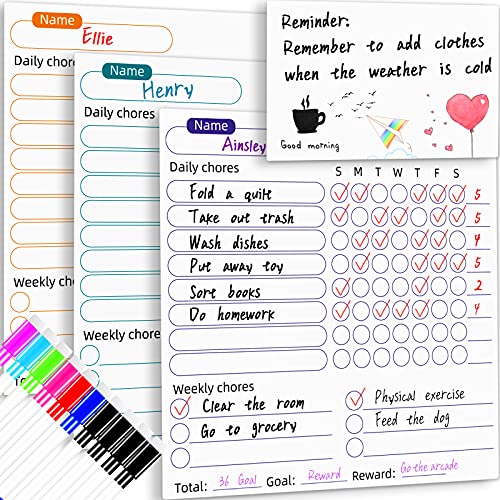 Name
Ellie
Daily chores
Weekly chores
Name
Henry
Daily chores
Weekly chores
Reminder:
Remember to add clothes
when the weather is cold
Good morning
Name
Ainsley
Daily chores S M T W T F S
Fold a quilt 5
Take out trash 5
Wash dishes 4
Put away toy 5
Sort books 2
Do homework 4
Weekly chores
Clear the room
Physical exercise
Go to grocery
Feed the dog
Total: 36 Goal Goal: Reward Reward: Go the arcade